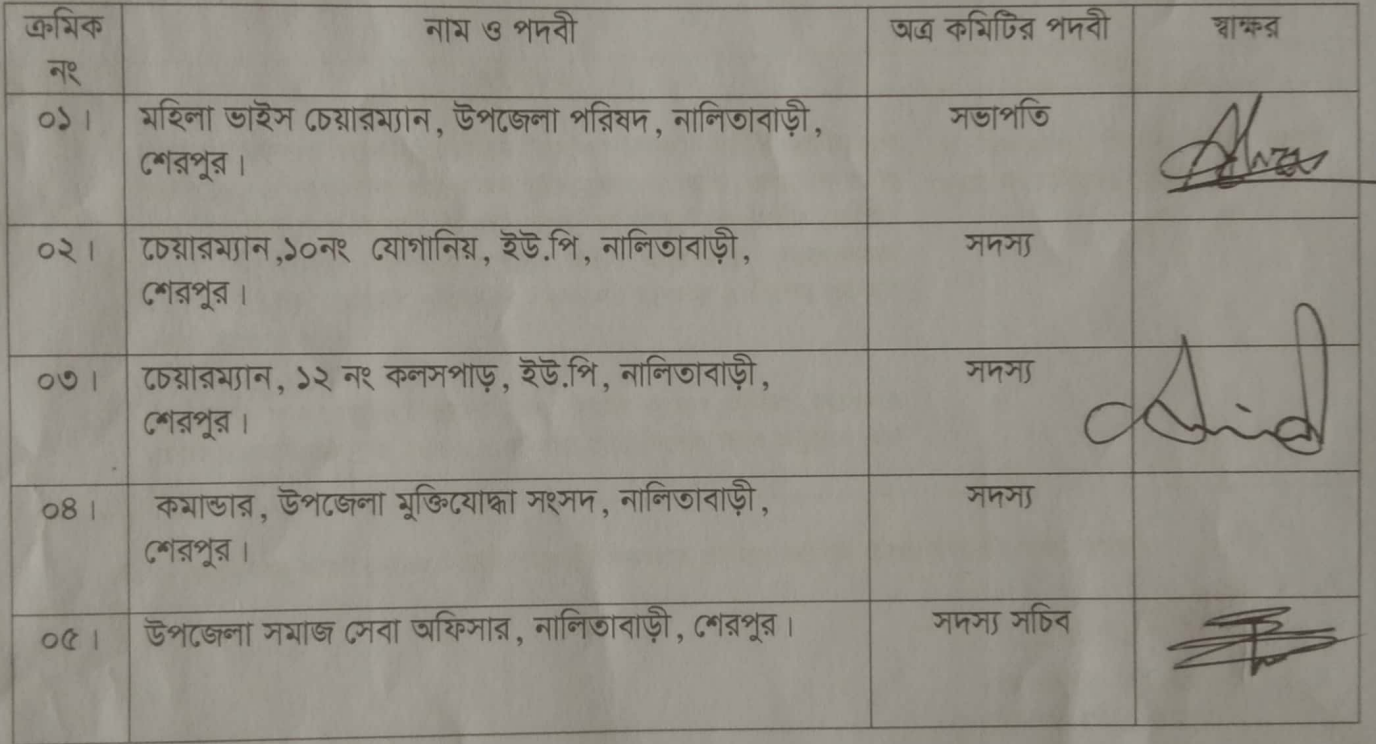 ক্রমিক নাম ও পদবী অত্র কমিটির পদবী স্বাক্ষর
নং
০১। মহিলা ভাইস চেয়ারম্যান, উপজেলা পরিষদ, নালিতাবাড়ী, সভাপতি
শেরপুর।
০২। চেয়ারম্যান,১০নং যোগানিয়, ইউ.পি, নালিতাবাড়ী, সদস্য
শেরপুর।
০৩। চেয়ারম্যান, ১২ নং কলসপাড়, ইউ.পি, নালিতাবাড়ী, সদস্য
শেরপুর।
০৪। কমান্ডার, উপজেলা মুক্তিযোদ্ধা সংসদ, নালিতাবাড়ী, সদস্য
শেরপুর।
০৫। উপজেলা সমাজ সেবা অফিসার, নালিতাবাড়ী, শেরপুর। সদস্য সচিব